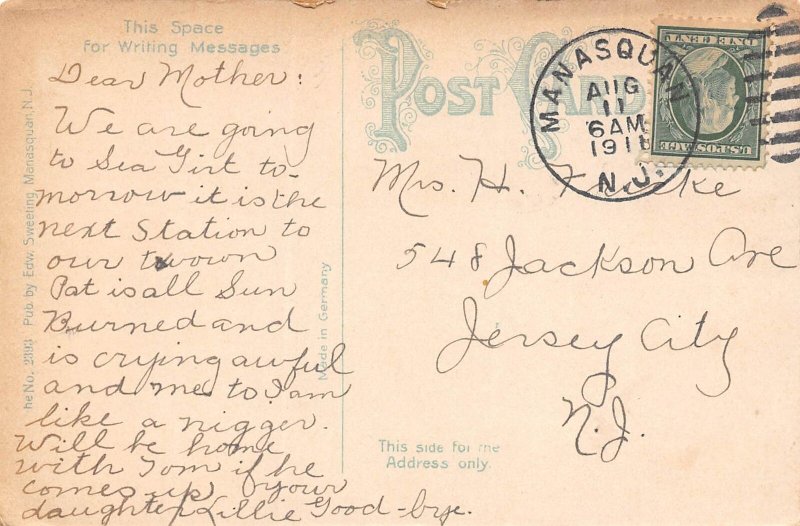 This Space
for Writing Messages
POST CARD
MANASQUAN
AUG
11
6AM
1911
N.J.
U.S. POSTAGE
ONE CENT
Dear Mother:
We are going
to Sea Girt to-
morrow it is the
next Station to
our town
Pat is all Sun
Burned and
is crying awful
and me to I am
like a nigger.
Will be home
with Tom if he
comes up your
daughter Lillie Good-bye.
Mrs. H.
548 Jackson Ave
Jersey City
N.J.
This side for the
Address only.
Made in Germany
he No. 2393 Pub. by Edw. Sweeting, Manasquan, N.J.